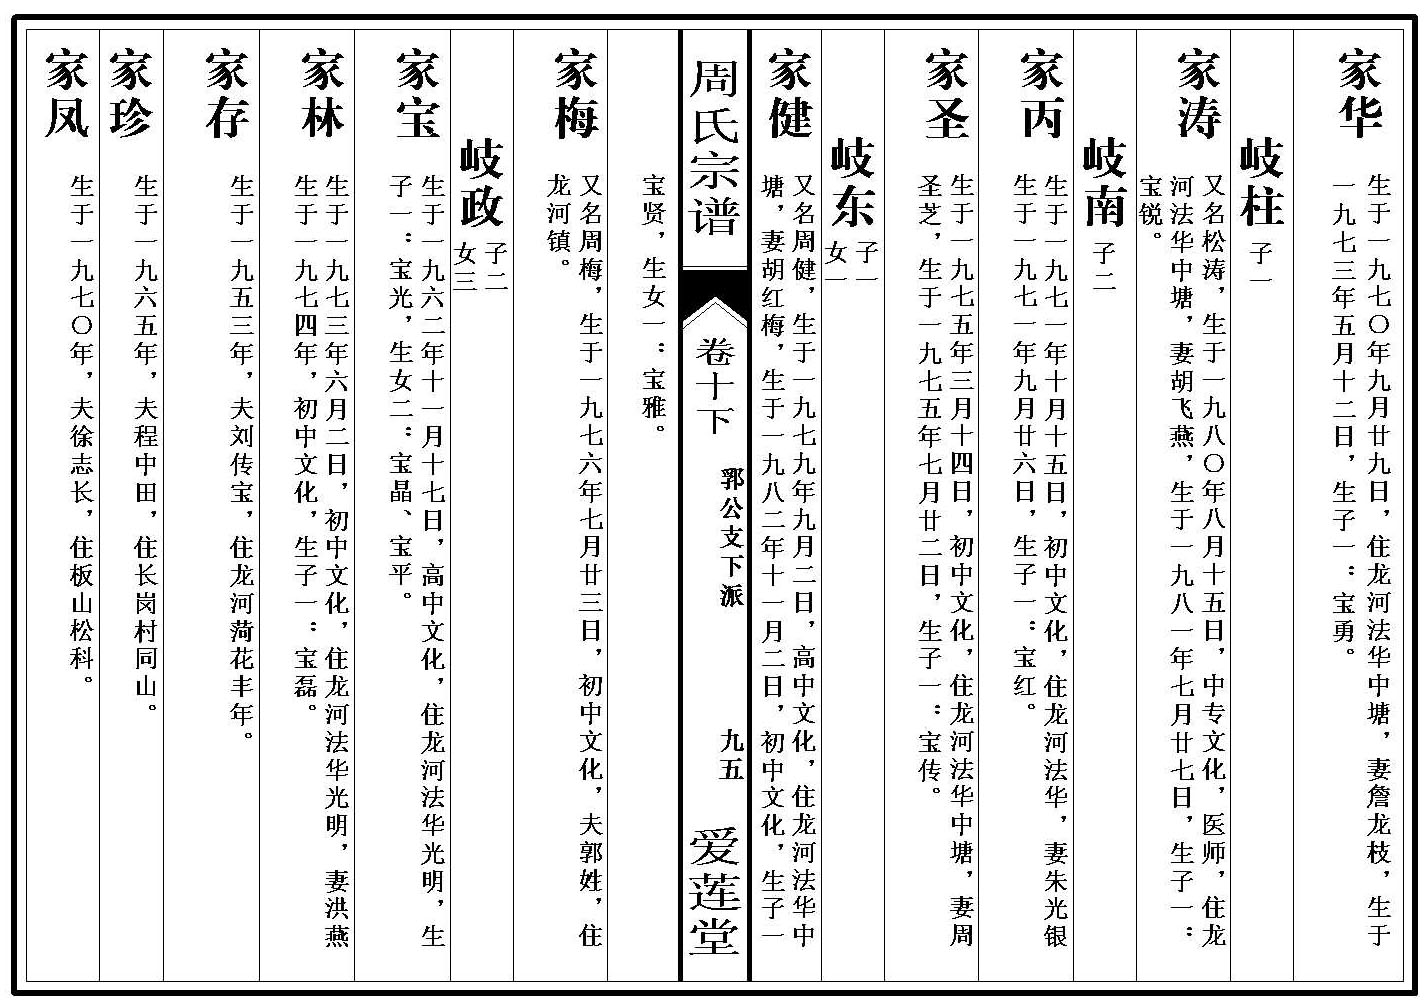 家华
生于一九七〇年九月廿九日，住龙河法华中塘，妻詹龙枝，生于
一九七三年五月十二日，生子一：宝勇。
岐柱
子一
家涛
又名松涛，生于一九八〇年八月十五日，中专文化，医师，住龙
河法华中塘，妻胡飞燕，生于一九八一年七月廿七日，生子一：
宝锐。
岐南
子二
家丙
生于一九七一年十月十五日，初中文化，住龙河法华，妻朱光银
生于一九七一年九月廿六日，生子一：宝红。
家圣
生于一九七五年三月十四日，初中文化，住龙河法华中塘，妻周
圣芝，生于一九七五年七月廿二日，生子一：宝传。
岐东
子一
女一
家健
又名周健，生于一九七九年九月二日，高中文化，住龙河法华中
塘，妻胡红梅，生于一九八二年十一月二日，初中文化，生子一
周氏宗谱
卷十下
郛公支下派
九五
爱莲堂
宝贤，生女一：宝雅。
家梅
又名周梅，生于一九七六年七月廿三日，初中文化，夫郭姓，住
龙河镇。
岐政
子二
女三
家宝
生于一九六二年十一月十七日，高中文化，住龙河法华光明，生
子一：宝光，生女二：宝晶、宝平。
家林
生于一九七三年六月二日，初中文化，住龙河法华光明，妻洪燕
生于一九七四年，初中文化，生子一：宝磊。
家存
生于一九五三年，夫刘传宝，住龙河菏花丰年。
家珍
生于一九六五年，夫程中田，住长岗村同山。
家凤
生于一九七〇年，夫徐志长，住板山松科。